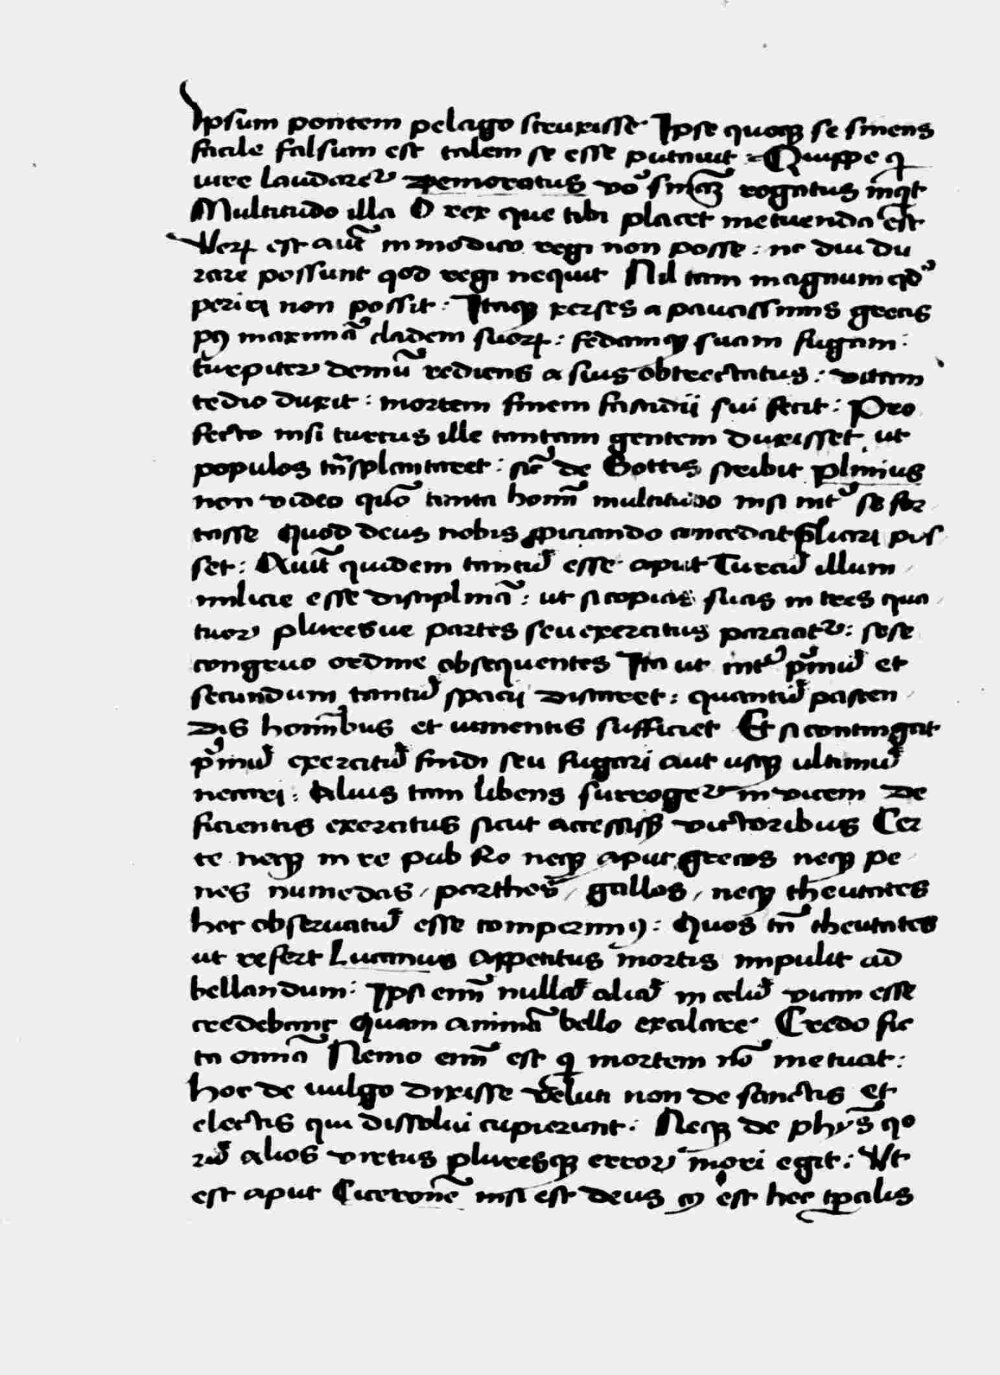 Ipsum pontem pelago strauisse Ipse quoqꝫ se sinens
facile falsum est talem se esse putauit : Quippe qͥ
iure laudareᷣ Demoratus vo᷒ sinãꝫ rogatus inqͥt
Multitudo illa O rex que tibi placet metuenda est
Verꝝ est aut̃ in modico regi non posse : nc diu du
rare possunt qod regi nequit Nil tam magnum qd᷒
perire non possit : Itaqꝫ xerses a paucissimis grecis
pꝰ maximã cladem suorꝝ : fedamqꝫ suam fugam :
turpiter demũ rediens a suis obtrectatus : vitam
tedio duxit : mortem finem fastidii sui fecit : Pro
fecto nisi turcus ille tantam gentem duxisset ut
populos tñsplantaret : sic̃ de Gottis scribit plinius
non video quõ tanta homĩ multitudo nisi int᷒ se for
tasse Quod deus nobis ꝓpiciando concedat p̃liari pos
set : Auit̃ quidem tantũ esse aput Turcũ illum
milicie esse disciplinã : ut si copias suas in tres qua
tuor pluresue partes seu exercitus parciatᷣ : sese
congruo ordine obsequentes Ita ut int᷒ pͥmũ et
secundum tantũ spacii distaret : quantũ pascen
dis hominibus et iumentis sufficiet Et si contingat
pͥmũ exercitũ findi seu fugari aut usqꝫ ultimũ
necari : Alius tam libens surrogeᷣ in vicem de
ficientis exercitus sicut accessisꝫ victoribus Cer
te neqꝫ in re pub Ro neqꝫ aput grecos neqꝫ pe
nes numedas / parthos / gallos / neqꝫ theutates
hec obseruatũ esse comperimꝰ : Quos tñ theutates
ut refert Lucanus appetitus mortis impulit ad
bellandum : Ipsi enĩ nullã aliã in celũ viam esse
credebant Quam animã bello exalare · Credo fic
ta omĩa Nemo enĩ est qͥ mortem nõ metuat :
hoc de vulgo dixisse veluti non de sanctis et
electis qui dissolui cupierunt : Neqꝫ de phỹs qo
rũ alios virtus pluresqꝫ error mori egit : Ut
est aput Ciceronẽ nisi est deus cꝰ est hec tꝑalis